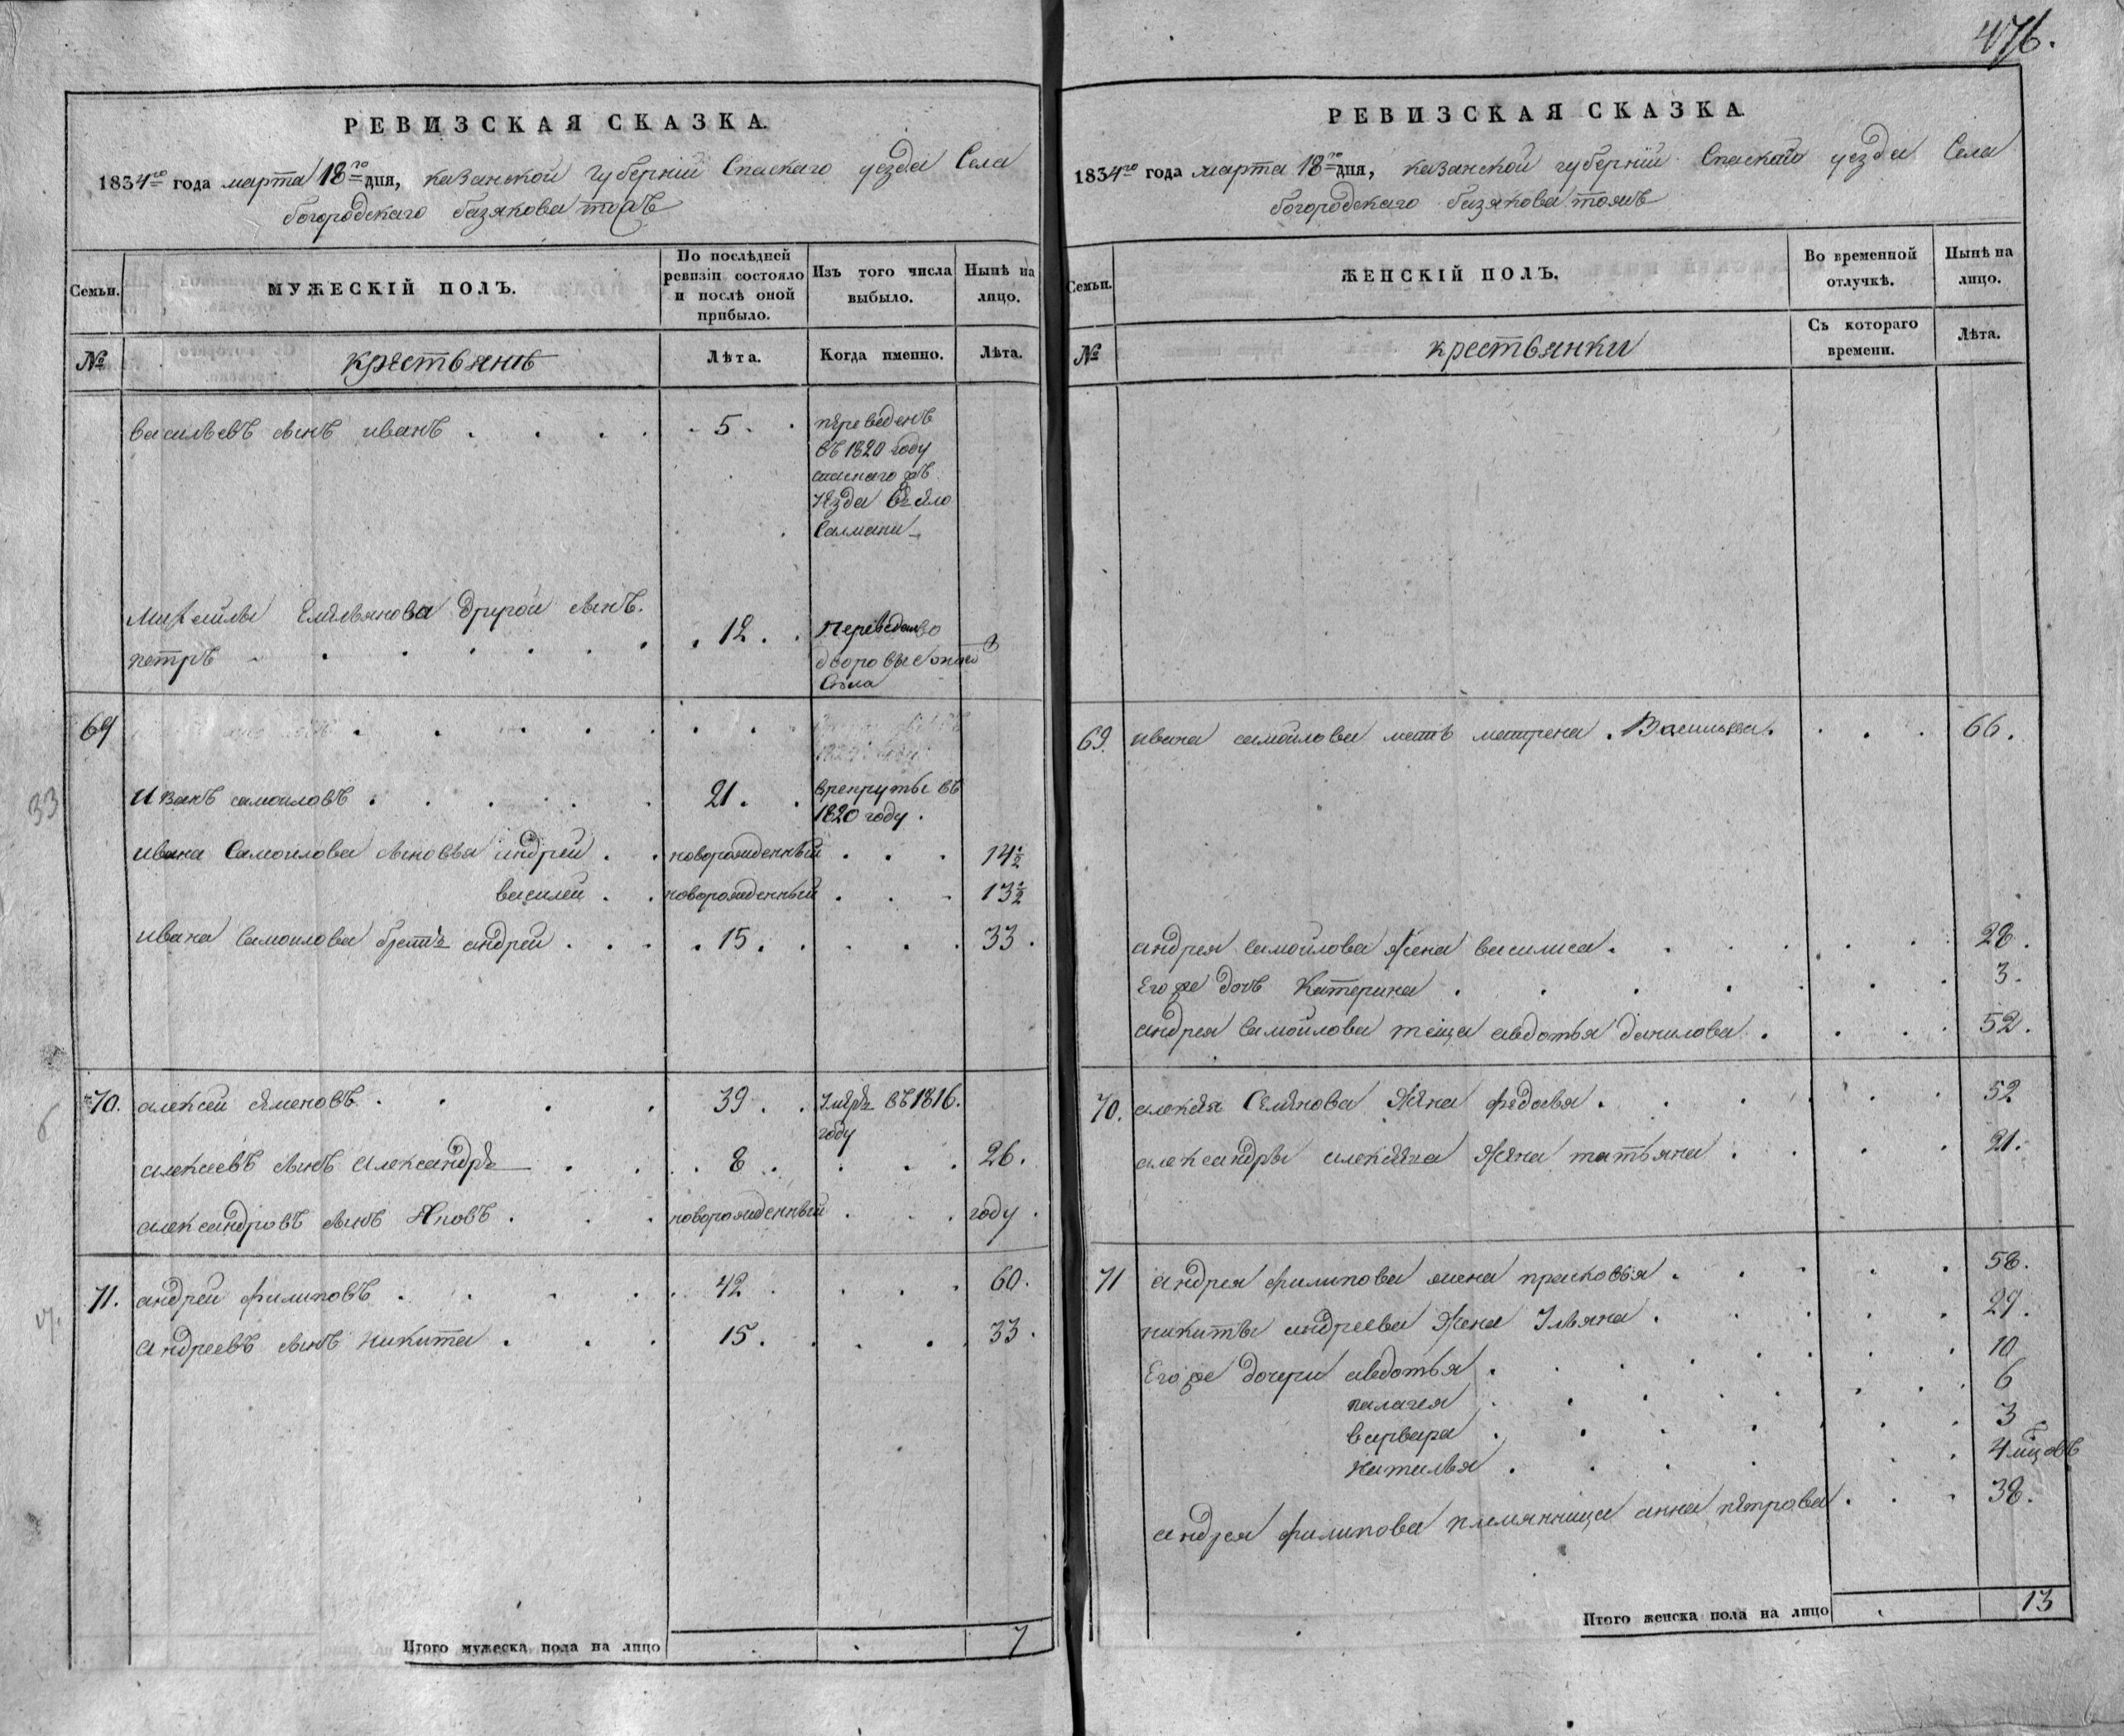 476.
РЕВИЗСКАЯ СКАЗКА.
1834го года марта 18го дня, казанской губерніи Спаскаго уезда Села
богородскаго базякова тожъ
Семьи.
МУЖЕСКІЙ ПОЛЪ.
По послѣдней ревизіи состояло и послѣ оной прибыло.
Изъ того числа выбыло.
Нынѣ на лицо.
№
крестьянѣ
Лѣта.
Когда именно.
Лѣта.
васильевъ сынъ иванъ . . . . 5 . переведенъ
въ 1820 году
спаскаго жъ
уезда въ село
Салмани
Михаилы Емельянова другой сынъ
петръ . . . . . . 12 . переведен во
дворовые
села
69
Иванъ самойловъ . . . . 21 . врекруты въ
1820 году .
ивана Самойлова сыновья андрей . . новорожденный . . . 14 1/2
василей . . новорожденный . . . 13 1/2
ивана Самойлова братъ андрей . . . 15 . . . . 33 .
70. алексей семеновъ . . . . 39 . . умре въ 1816.
году
алексеевъ сынъ александръ . . . 8 . . . . 26.
александровъ сынъ яковъ . . . новорожденный . . . году .
71. андрей филиповъ . . . . 42 . . . . 60.
андреевъ сынъ никита . . . 15 . . . . 33 .
Итого мужеска пола на лицо . . 7
РЕВИЗСКАЯ СКАЗКА.
1834го года марта 18го дня, казанской губерніи Спаскаго уезда Села
богородскаго базякова тожъ
Семьи.
ЖЕНСКІЙ ПОЛЪ.
Во временной отлучкѣ.
Нынѣ на лицо.
№
крестьянки
Съ котораго времени.
Лѣта.
69. ивана самойлова мать матрена . Васильева . . . . 66 .
андрея самойлова жена василиса . . . . . . 28 .
Его же дочь Катерина . . . . . . . 3 .
андрея самойлова теща авдотья данилова . . . . 52 .
70. алексея Семенова жена федосья . . . . . . 52
александры алексеева жена татьяна . . . . 21.
71 андрея филипова жена прасковья . . . . . 58 .
никиты андреева жена Ульяна . . . . . 29 .
Его же дочери авдотья . . . . . . . 10
палагея . . . . . . 6
варвара . . . . . . 3
наталья . . . . . . 4 мцовъ
андрея филипова племянница анна петрова . . . 38 .
Итого женска пола на лицо . 13